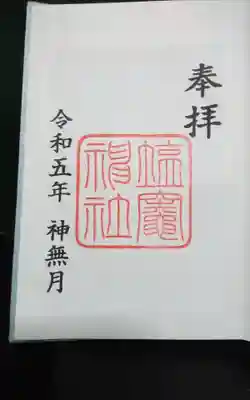 奉拝
塩竈
神社
令和五年 神無月